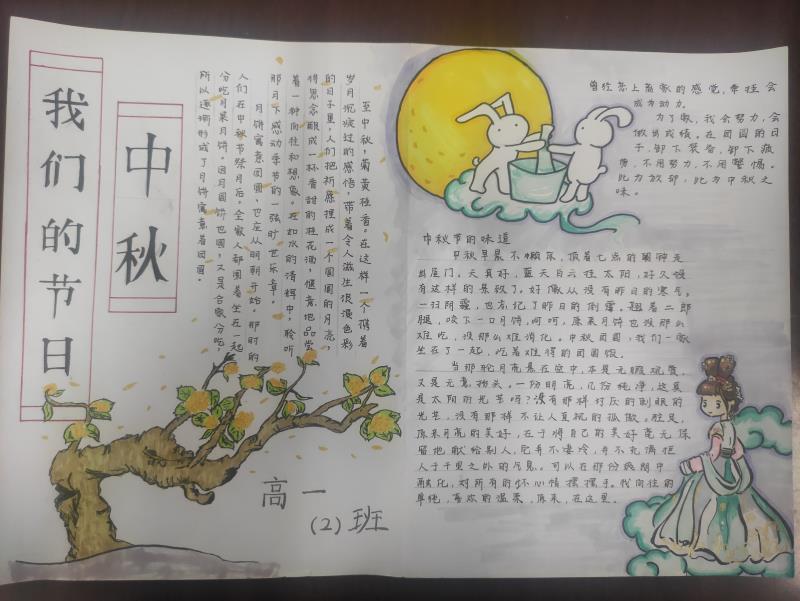 我们的节日
中秋
至中秋，菊黄桂香。在这样一个携着
岁月沉淀过的感悟，带着令人滋生浪漫色彩
的日子里，人们把祈愿捏成一个圆圆的月亮，
将思念酿成一杯香甜的桂花酒，惬意地品尝
着一种向往和想象。在如水的清辉中，聆听
那月下感动季节的一张旷世乐章。
月饼寓意团圆，也应从明朝开始。那时的
人们在中秋节祭月后，全家人都围着坐在一起
分吃月菜月饼。因月圆饼也圆，又是合家分吃，
所以逐渐形成了月饼寓意着团圆。
高一
（2）班
曾经恋上离家的感觉，牵挂会
成为动力。
为了家，我会努力，会
做出成绩。在团圆的日
子，卸下装备，卸下疲
惫，不用努力，不用警惕。
此为放却，此为中秋之
味。
中秋节的味道
中秋早晨不懒床，顶着七点的闹钟走
出屋门。天真好，蓝天白云挂太阳，好久没
有这样的景致了。好像从没有昨日的寒气，
一扫阴霾，也忘记了昨日的倒霉。翘着二郎
腿，咬下一口月饼，呵呵，原来月饼也没那么
难吃，没那么难消化。中秋团圆，我们一家
坐在了一起，吃着难得的团圆饭。
当那轮月亮悬在空中，本是无暇观赏，
又是无意抬头。一份明亮，几份纯净，这莫
是太阳的光芒吗？没有那样灼灼的刺眼的
光芒，没有那样不让人直视的孤傲。
原来月亮的美好，在于将自己的美好毫无保
留地献给别人，它并不凄冷，并不充满拒
人于千里之外的气息。可以在那份
融化，对所有的坏心情摆摆手。我向往的
单纯，喜欢的温柔，原来，在这里。